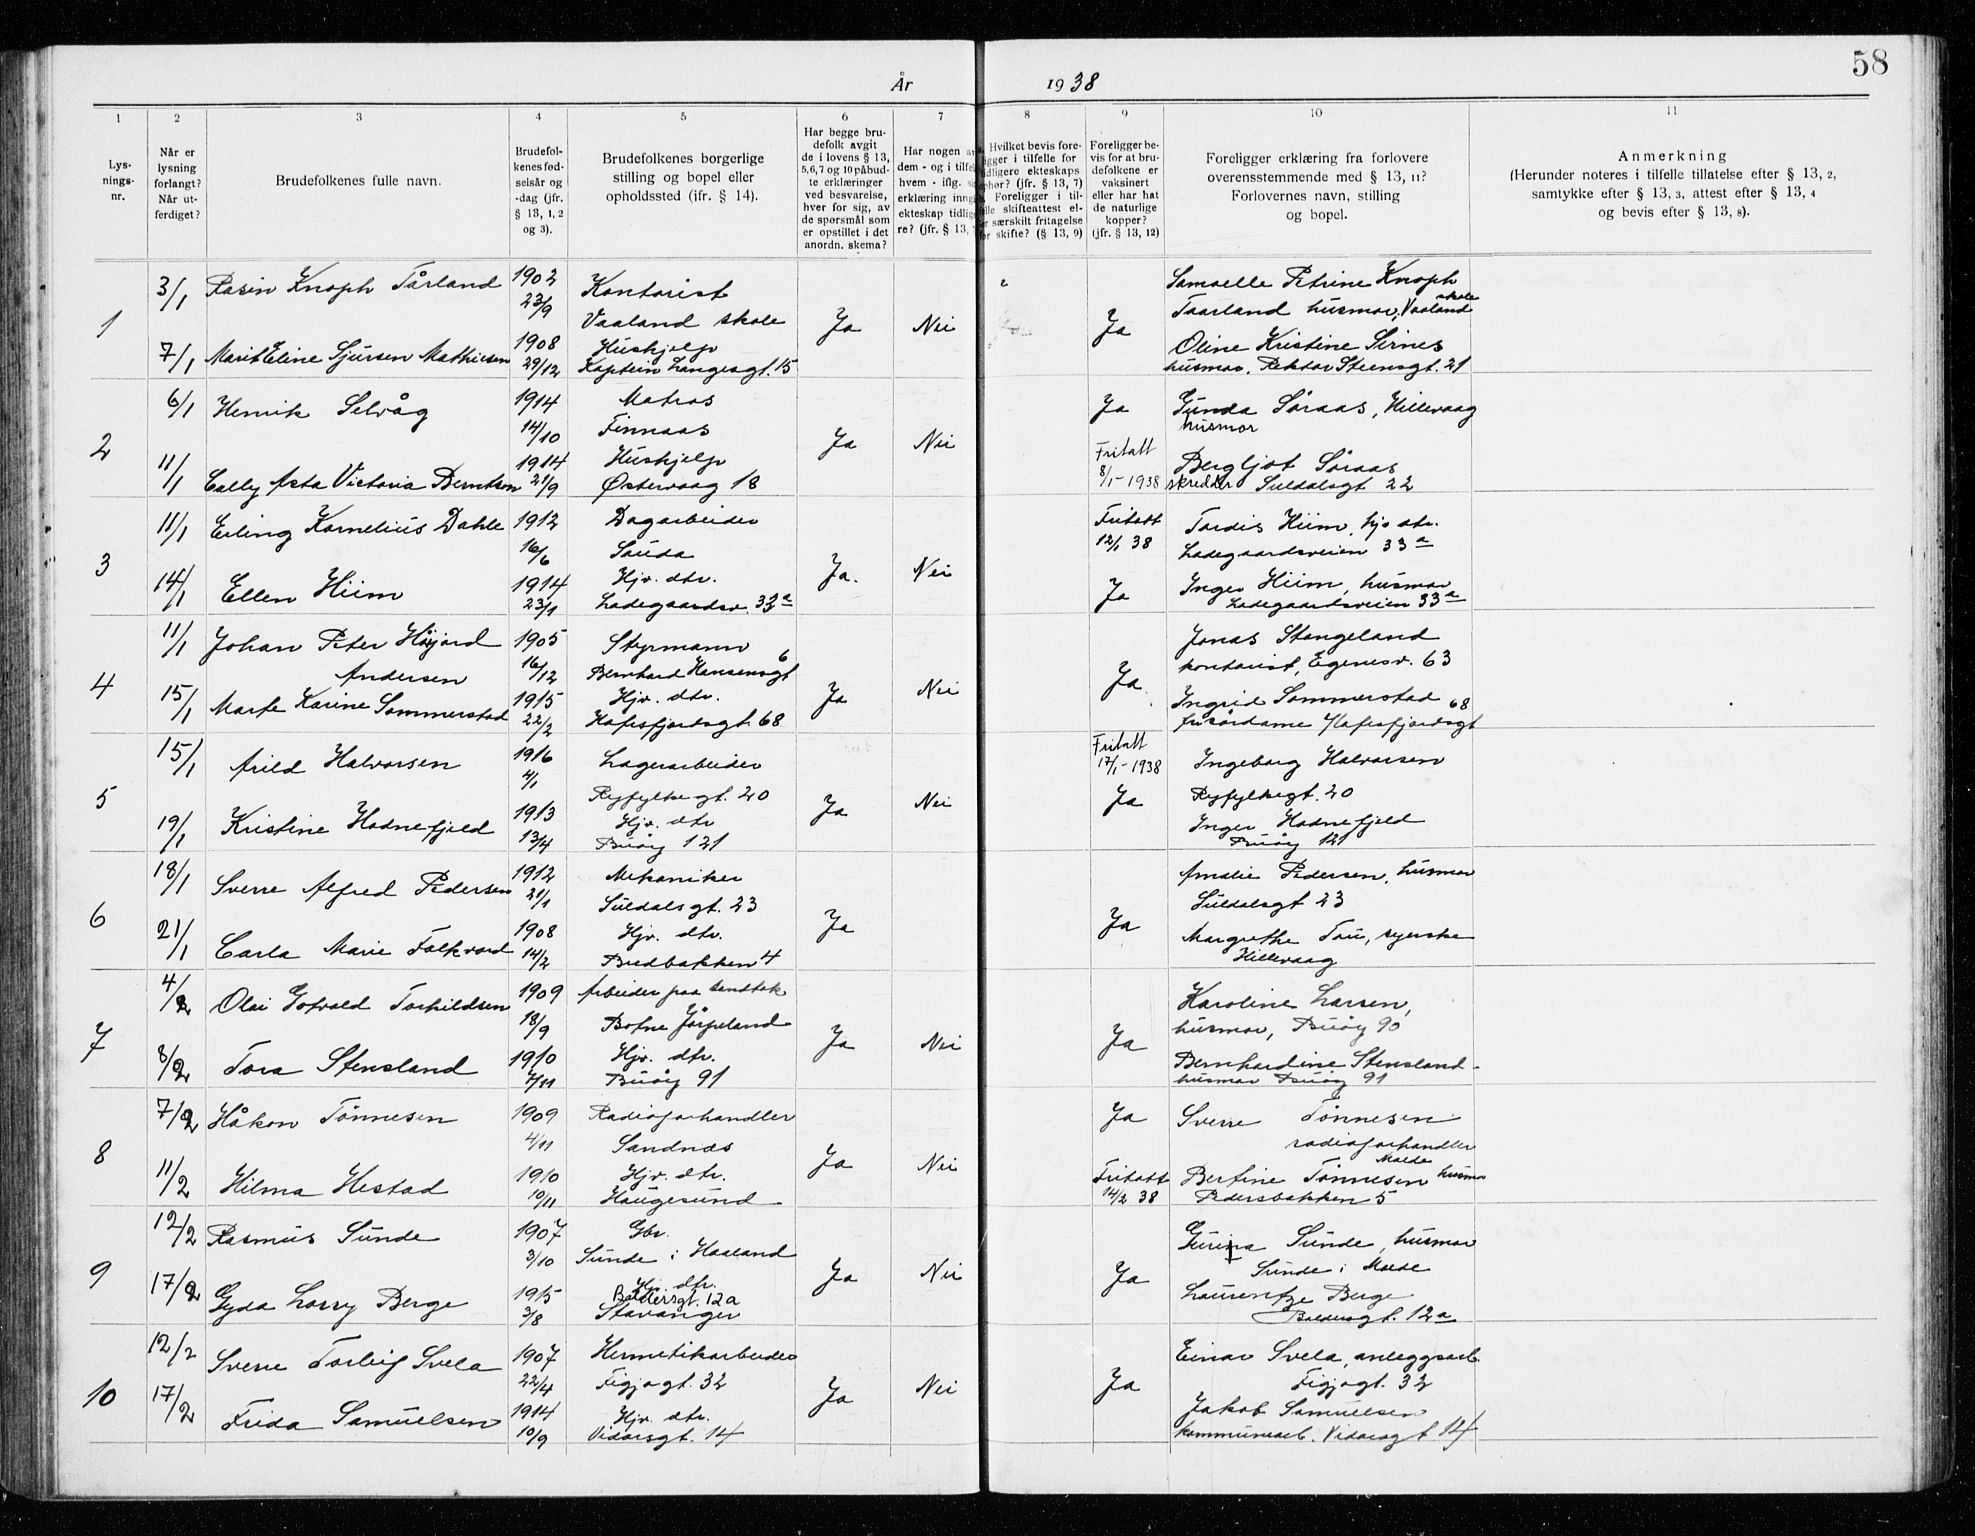 58
År 1938
1
2
3
4
5
6
7
8
9
10
11
Lys-
nings-
nr.
Når er
lysning
forlangt?
Når ut-
ferdiget?
Brudefolkenes fulle navn.
Brudefol-
kenes fød-
selsår og
-dag (jfr.
§ 13, 1, 2
og 3).
Brudefolkenes borgerlige
stilling og bopel eller
opholdssted (jfr. § 14).
Har begge bru-
defolk avgit
de i lovens § 13,
5, 6, 7 og 10 påbud-
te erklæringer
ved besvarelse,
hver for sig, av
de spørsmål som
er opstillet i det
anordn. skema?
Har nogen av
dem - og i tilfelle
hvem - iflg.
erklæring inngå
ekteskap tidlige-
re? (jfr. § 13,
Hvilket bevis fore-
ligger i tilfelle for
tidligere ekteskaps
ophør? (jfr. § 13, 7)
Foreligger i til-
felle skifteattest el-
ler særskilt fritagelse
for skifte? (§ 13, 9)
Foreligger be-
vis for at bru-
defolkene er
vaksinert
eller har hat
de naturlige
kopper?
(jfr. § 13, 12)
Foreligger erklæring fra forlovere
overensstemmende med § 13, 11?
Forlovernes navn, stilling
og bopel.
Anmerkning
(Herunder noteres i tilfelle tillatelse efter § 13, 2,
samtykke efter § 13, 3, attest efter § 13, 4
og bevis efter § 13, 8).
1
3/1 Rasin Knoph Tårland 1902 Kontorist
23/9 Vaaland skole
Ja Nei Ja
Samoelle Petrine Knoph
Taarland husmor, Vaaland skole
7/1 Marit Eline Sjursen Mathiesen 1908 Huskjelp
29/12 Kaptein Langesgt. 15
Oline Kristine Sirnes
husmor. Rektor Steensgt. 21
2
6/1 Henrik Selvåg 1914 Matros
14/10 Finnaas
Ja Nei
Ja Gunda Søraas, Hillevaag
husmor
11/1 Cally Asta Victoria Berntsen 1914 Huskjelp
21/9 Østervaag 18
Fritatt
8/1-1938
Bergljot Søraas
skredder Suldalsgt 22
3
11/1 Erling Kornelius Dahle 1912 Dagarbeider
16/6 Sauda
Ja. Nei
Fritatt
12/1 38
Tordis Hiim, hjv dtr.
Ladegaardsveien 33a
14/1 Ellen Hiim 1914 Hjv. dtr.
23/1 Ladegaardsv. 33a
Ja Inger Hiim, husmor
Ladegaardsveien 33a
4
11/1 Johan Peter Høyjord 1905 Styrmann
Andersen 16/12 Bernhard Hansensgt 6
Ja Nei Ja
Jonas Stangeland
kontorist, Egenesv. 63
15/1 Marte Karine Sommerstad 1915 Hjv. dtr.
22/2 Hafrsfjordsgt. 68
Ingrid Sommerstad
frisørdame Hafrsfjordsgt 68
5
15/1 Arild Halvorsen 1916 Lagerarbeider
4/1 Ryfylkegt. 20
Ja Nei
Fritatt
17/1-1938
Ingeborg Halvorsen
Ryfylkegt. 20
19/1 Kristine Hodnefjeld 1913 Hjv. dtr
13/4 Buøy 121
Ja Inger Hodnefjeld
Buøy 121
6
18/1 Sverre Alfred Pedersen 1912 Mekaniker
21/1 Suldalsgt. 23
Ja Ja
Amalie Pedersen, husmor
Suldalsgt 23
21/1 Carla Marie Folkvord 1908 Hjv. dtr.
14/2 Bredbakken 4
Margrethe Tou, syerske
Hillevaag
7
4/2 Olai Gotvald Torkildsen 1909 Arbeider paa
18/9 Botne Jørpeland
Ja Nei Ja
Karoline Larsen,
husmor, Buøy 90
8/2 Tora Stensland 1910 Hjv. dtr.
7/11 Buøy 91
Bernhardine Stensland
husmor Buøy 91
8
7/2 Håkon Tønnesen 1909 Radioforhandler
4/11 Sandnes
Ja Nei
Ja Sverre Tønnesen
radioforhandler
11/2 Hilma Hestad 1910 Hjv. dtr.
10/11 Haugesund
Fritatt
14/2 38
Molde
Bertine Tønnesen husmor
Pedersbakken 5
9
12/2 Rasmus Sunde 1907 Gbr.
3/10 Sunde i Haaland
Ja Nei Ja
Gurina Sunde, husmor
Sunde i Molde
17/2 Gyda Lorry Berge 1915 Hjv. dtr.
Baldersgt. 12a
3/8 Stavanger
Laurentze Berge
Baldersgt. 12a
10
12/2 Sverre Torleif Svela 1907 Hermetikarbeider
22/4 Figjogt. 32
Ja Nei Ja
Einar Svela, anleggsarb.
Figjogt. 32
17/2 Frida Samuelsen 1914 Hjv. dtr.
10/9 Vidarsgt. 14
Jakob Samuelsen
kommunearb. Vidarsgt 14